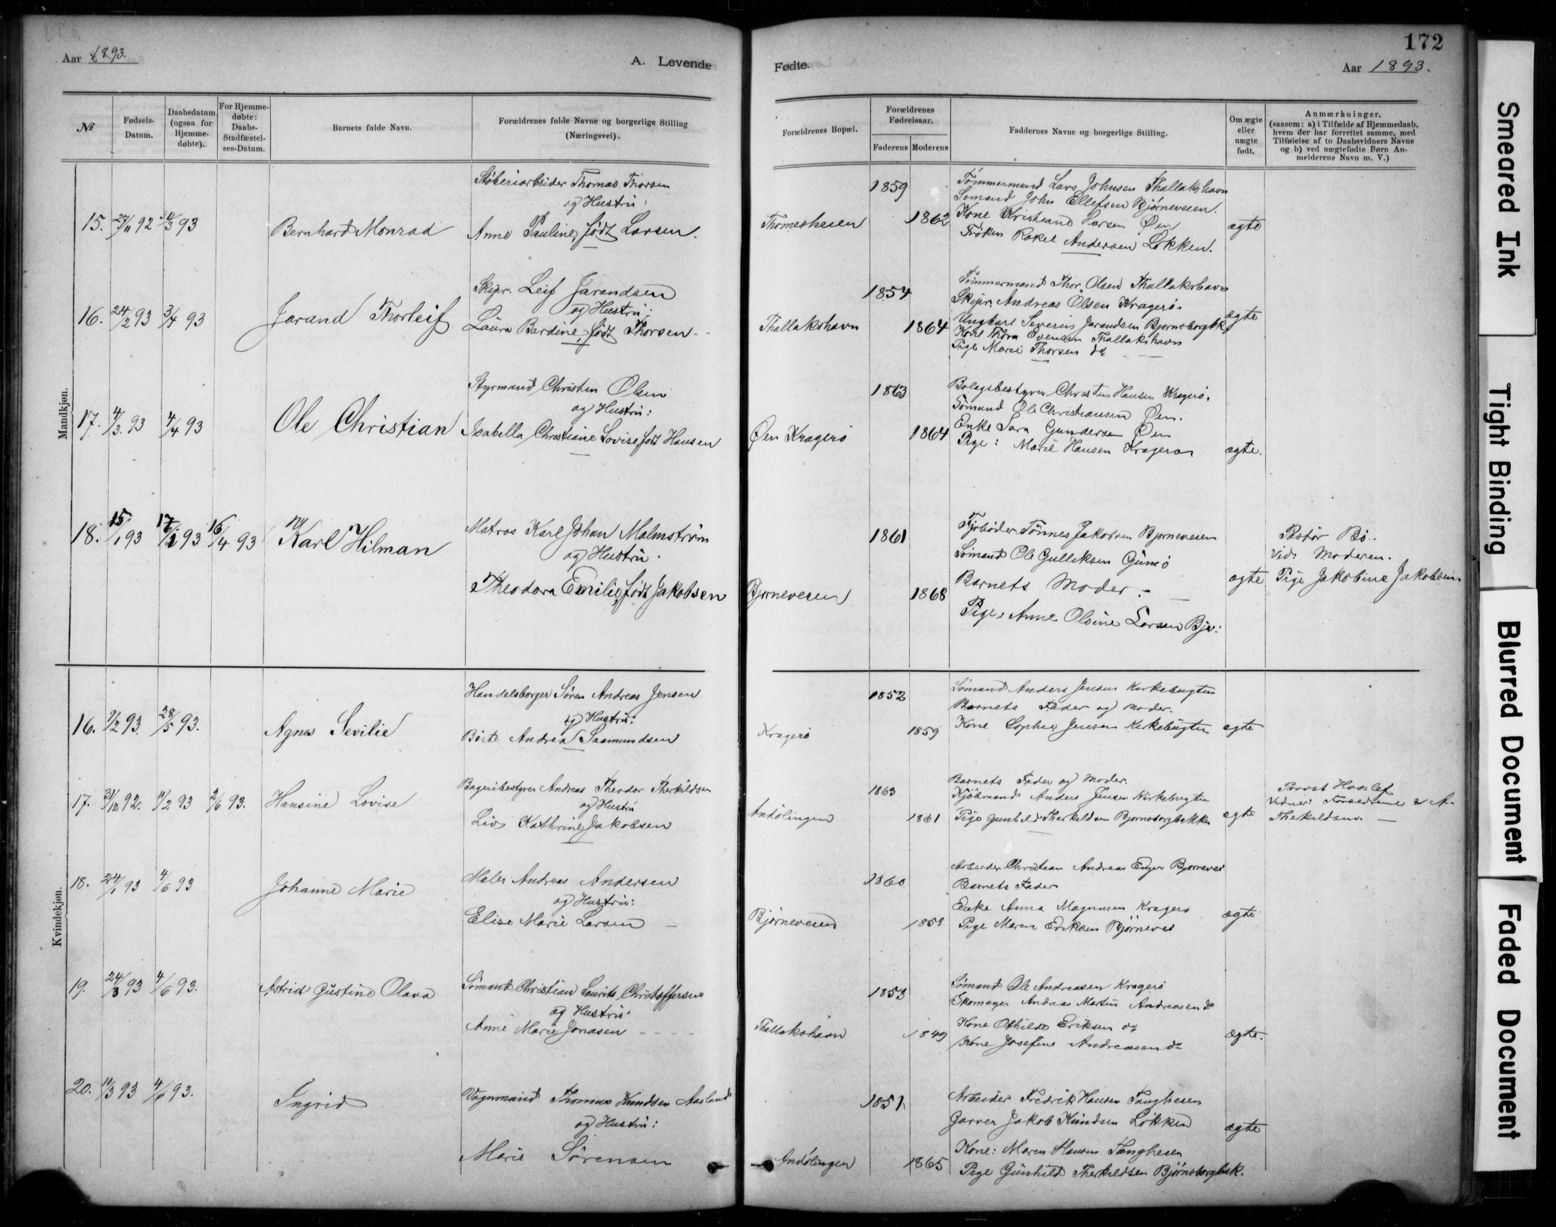 Aar 1893.
A. Levende
Fødte.
172
Aar 1893.
№
Fødsels-
Datum.
Daabsdatum
(ogsaa for
Hjemme-
døbte).
For Hjemme-
døbte:
Daabs-
Stadfæstel-
ses-Datum.
Barnets fulde Navn.
Forældrenes fulde Navne og borgerlige Stilling
(Næringsvei).
Forældrenes Bopæl.
Forældrenes
Fødselsaar.
Faderens
Moderens
Faddernes Navne og borgerlige Stilling.
Om ægte
eller
uægte
født.
Anmærkninger.
(saasom: a) i Tilfælde af Hjemmedaab,
hvem der har forrettet samme, med
Tilføielse af to Daabsvidners Navne
og b) ved uægtefødte Børn An-
melderens Navn m. V.)
Mandkjøn.
15. 27/11 92 93
Bernhard Monrad
Støberiarbeider Thomas Thorsen
og Hustru:
Anne Pauline, født Larsen.
Thomesheien
1859
1862
Tømmermand Lars Johnsen Thallakshavn
Sømand John Ellefsen Bjørneveien.
Kone Kristiane Larsen Øen
Frøken Rakel Andersen Løkken.
ægte
16. 24/2 93 3/4 93
Jarand Thorleif
Skipr. Leif Jarandsen
og Hustru:
Laura Bardine, født Thorsen.
Thallakshavn
1854
1864
Tømmermand Thor Olsen Thallakshavn
Skipr. Andreas Olsen Kragerø.
Ungkarl Severin Jarandsen Bjørnsborgbk.
Kone Thora Evensen Thallakshavn
Pige Marie Thorsen do
ægte
17. 4/3 93 4/4 93
Ole Christian
Styrmand Christen Olsen
og Hustru:
Isabella Christiane Lovise født Hansen
Øen Kragerø
1863
1864
Bolagsbestyrer Christen Hansen Kragerø.
Sømand Ole Christiansen Øen.
Enke Sara Gundersen Øen
Pige: Marie Hansen Kragerø
ægte.
18. 15/1 93 17/1 93 16/4 93
Karl Hilman
Matros Karl Johan Malmstrøm
og Hustru.
Theodora Emilie, født Jakobsen
Bjørneveien
1861
1868
Fyrbøder Tønnes Jakobsen Bjørneveien
Sømand Ole Gulliksen Gumø
Barnets Moder.
Pige: Anne Olvine Larsen Bjv:
ægte
Pastor Bø.
Vid: Moderen.
Pige Jakobine Jakobsen
Kvindekjøn.
16. 7/2 93. 28/5 93.
Agnes Sevilie
Handelsborger Søren Andreas Jensen
og Hustru:
Birte Andrea Saamundsen
Kragerø
1852
1859
Sømand Anders Jensen Kirkebugten
Barnets Fader og Moder.
Kone Sophie Jensen Kirkebugten
ægte
17. 3/12 92. 11/2 93 2/6 93.
Hansine Lovise
Bageribestyrer Andreas Theodor Therkildsen
og Hustru
Liv Kathrine Jakobsen
Andølingen
1863
1861
Barnets Fader og Moder.
Kjøbmand Anders Jensen Kirkebugten
Pige Gunhild Therkildsen Bjørnsborgbakken
ægte
Provst Hassel
Therkildsen.
18. 24/1 93 4/6 93
Johanne Marie
Maler Andreas Andersen
og Hustru:
Elise Marie Larsen
Bjørneveien
1860
1858
Arbeider Christian Andreas Bjørnevei
Barnets Fader
Enke Anna Magnusen Kragerø
Pige Maren Eriksen Bjørnevei
ægte
19. 24/3 93 4/6 93.
Astrid Gustine Olava
Sømand Christian Laurits Christoffersen
og Hustru:
Anne Marie Jonasen
Thallakshavn
1853
1849
Sømand Ole Andreasen Kragerø
Skomager Andreas Martin Andreasen do
Kone Othilde Eriksen og
Kone Josefine Andreasen do
ægte.
20. 11/3 93 4/6 93.
Ingrid
Vognmand Thomas Knudsen Aasland
og Hustru:
Marie Sørensen
Andølingen
1851
1865
Arbeider Fredrik Hansen Tangheien
Garver Jakob Knudsen Løkken
Kone: Maren Hansen Tangheien
Pige Gunhild Therkildsen Bjørnsborgbak.
ægte
Smeared Ink
Tight Binding
Blurred Document
Faded Document